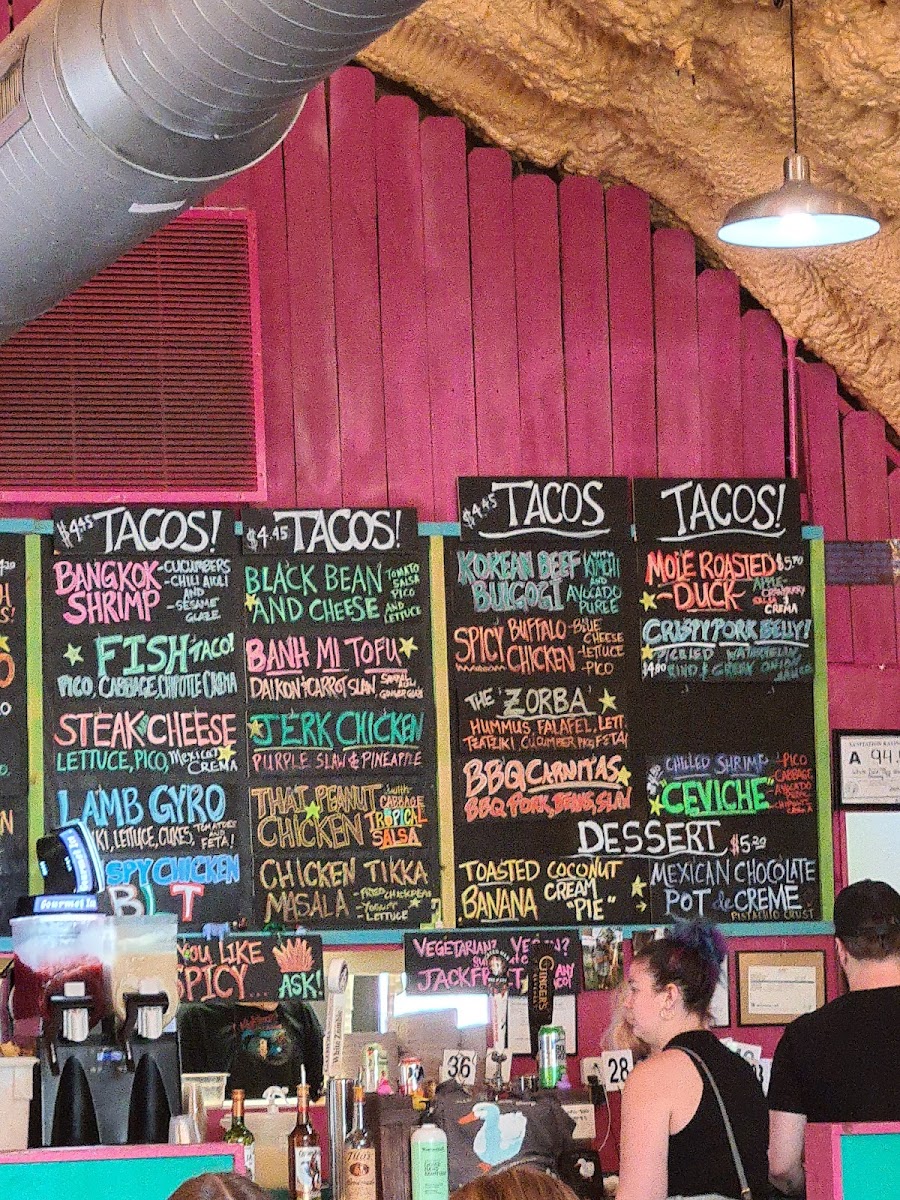 $4.45 TACOS!
BANGKOK SHRIMP
-CUCUMBERS
-CHILI AIOLI
AND
-SESAME GLAZE
FISH TACO!
PICO, CABBAGE, CHIPOTLE CREMA
STEAK AND CHEESE
LETTUCE, PICO, Mexican CREMA
LAMB GYRO
LETTUCE, CUKES, TOMATOES AND FETA!
CHICKEN
B T
$4.45 TACOS!
BLACK BEAN AND CHEESE
TOMATO SALSA
PICO
AND
LETTUCE
BANH MI TOFU
DAIKON & CARROT SLAW
JERK CHICKEN
PURPLE SLAW & PINEAPPLE
THAI PEANUT CHICKEN
with CABBAGE
TROPICAL SALSA
CHICKEN TIKKA MASALA
-FRIED CHICKPEAS
-YOGURT
-LETTUCE
$4.45 TACOS
KOREAN BEEF BULGOGI
KIMCHI
AND
AVOCADO
PUREE
SPICY BUFFALO CHICKEN
-BLUE CHEESE
-LETTUCE
-PICO
THE 'ZORBA'
HUMMUS, FALAFEL, LETT,
TZATZIKI CUCUMBER FETA!
BBQ CARNITAS
BBQ PORK, BEANS, SLAW
TACOS!
MOLE ROASTED $5.70
-DUCK-
APPLE-CRANBERRY
SALSA
CREMA
CRISPY PORK BELLY!
PICKLED WATERMELON
$4.80 RIND & GREEN ONION
CHILLED SHRIMP
"CEVICHE"
-PICO
CABBAGE
AVOCADO
DESSERT $5.20
TOASTED COCONUT
BANANA CREAM "PIE"
MEXICAN CHOCOLATE
POT de CREME
PISTACHIO CRUST
YOU LIKE
SPICY... ASK!
VEGETARIAN?
JACKFRUIT
A 94.
Gourmet
White Zombie
GINGER'S
36
28
Tito's